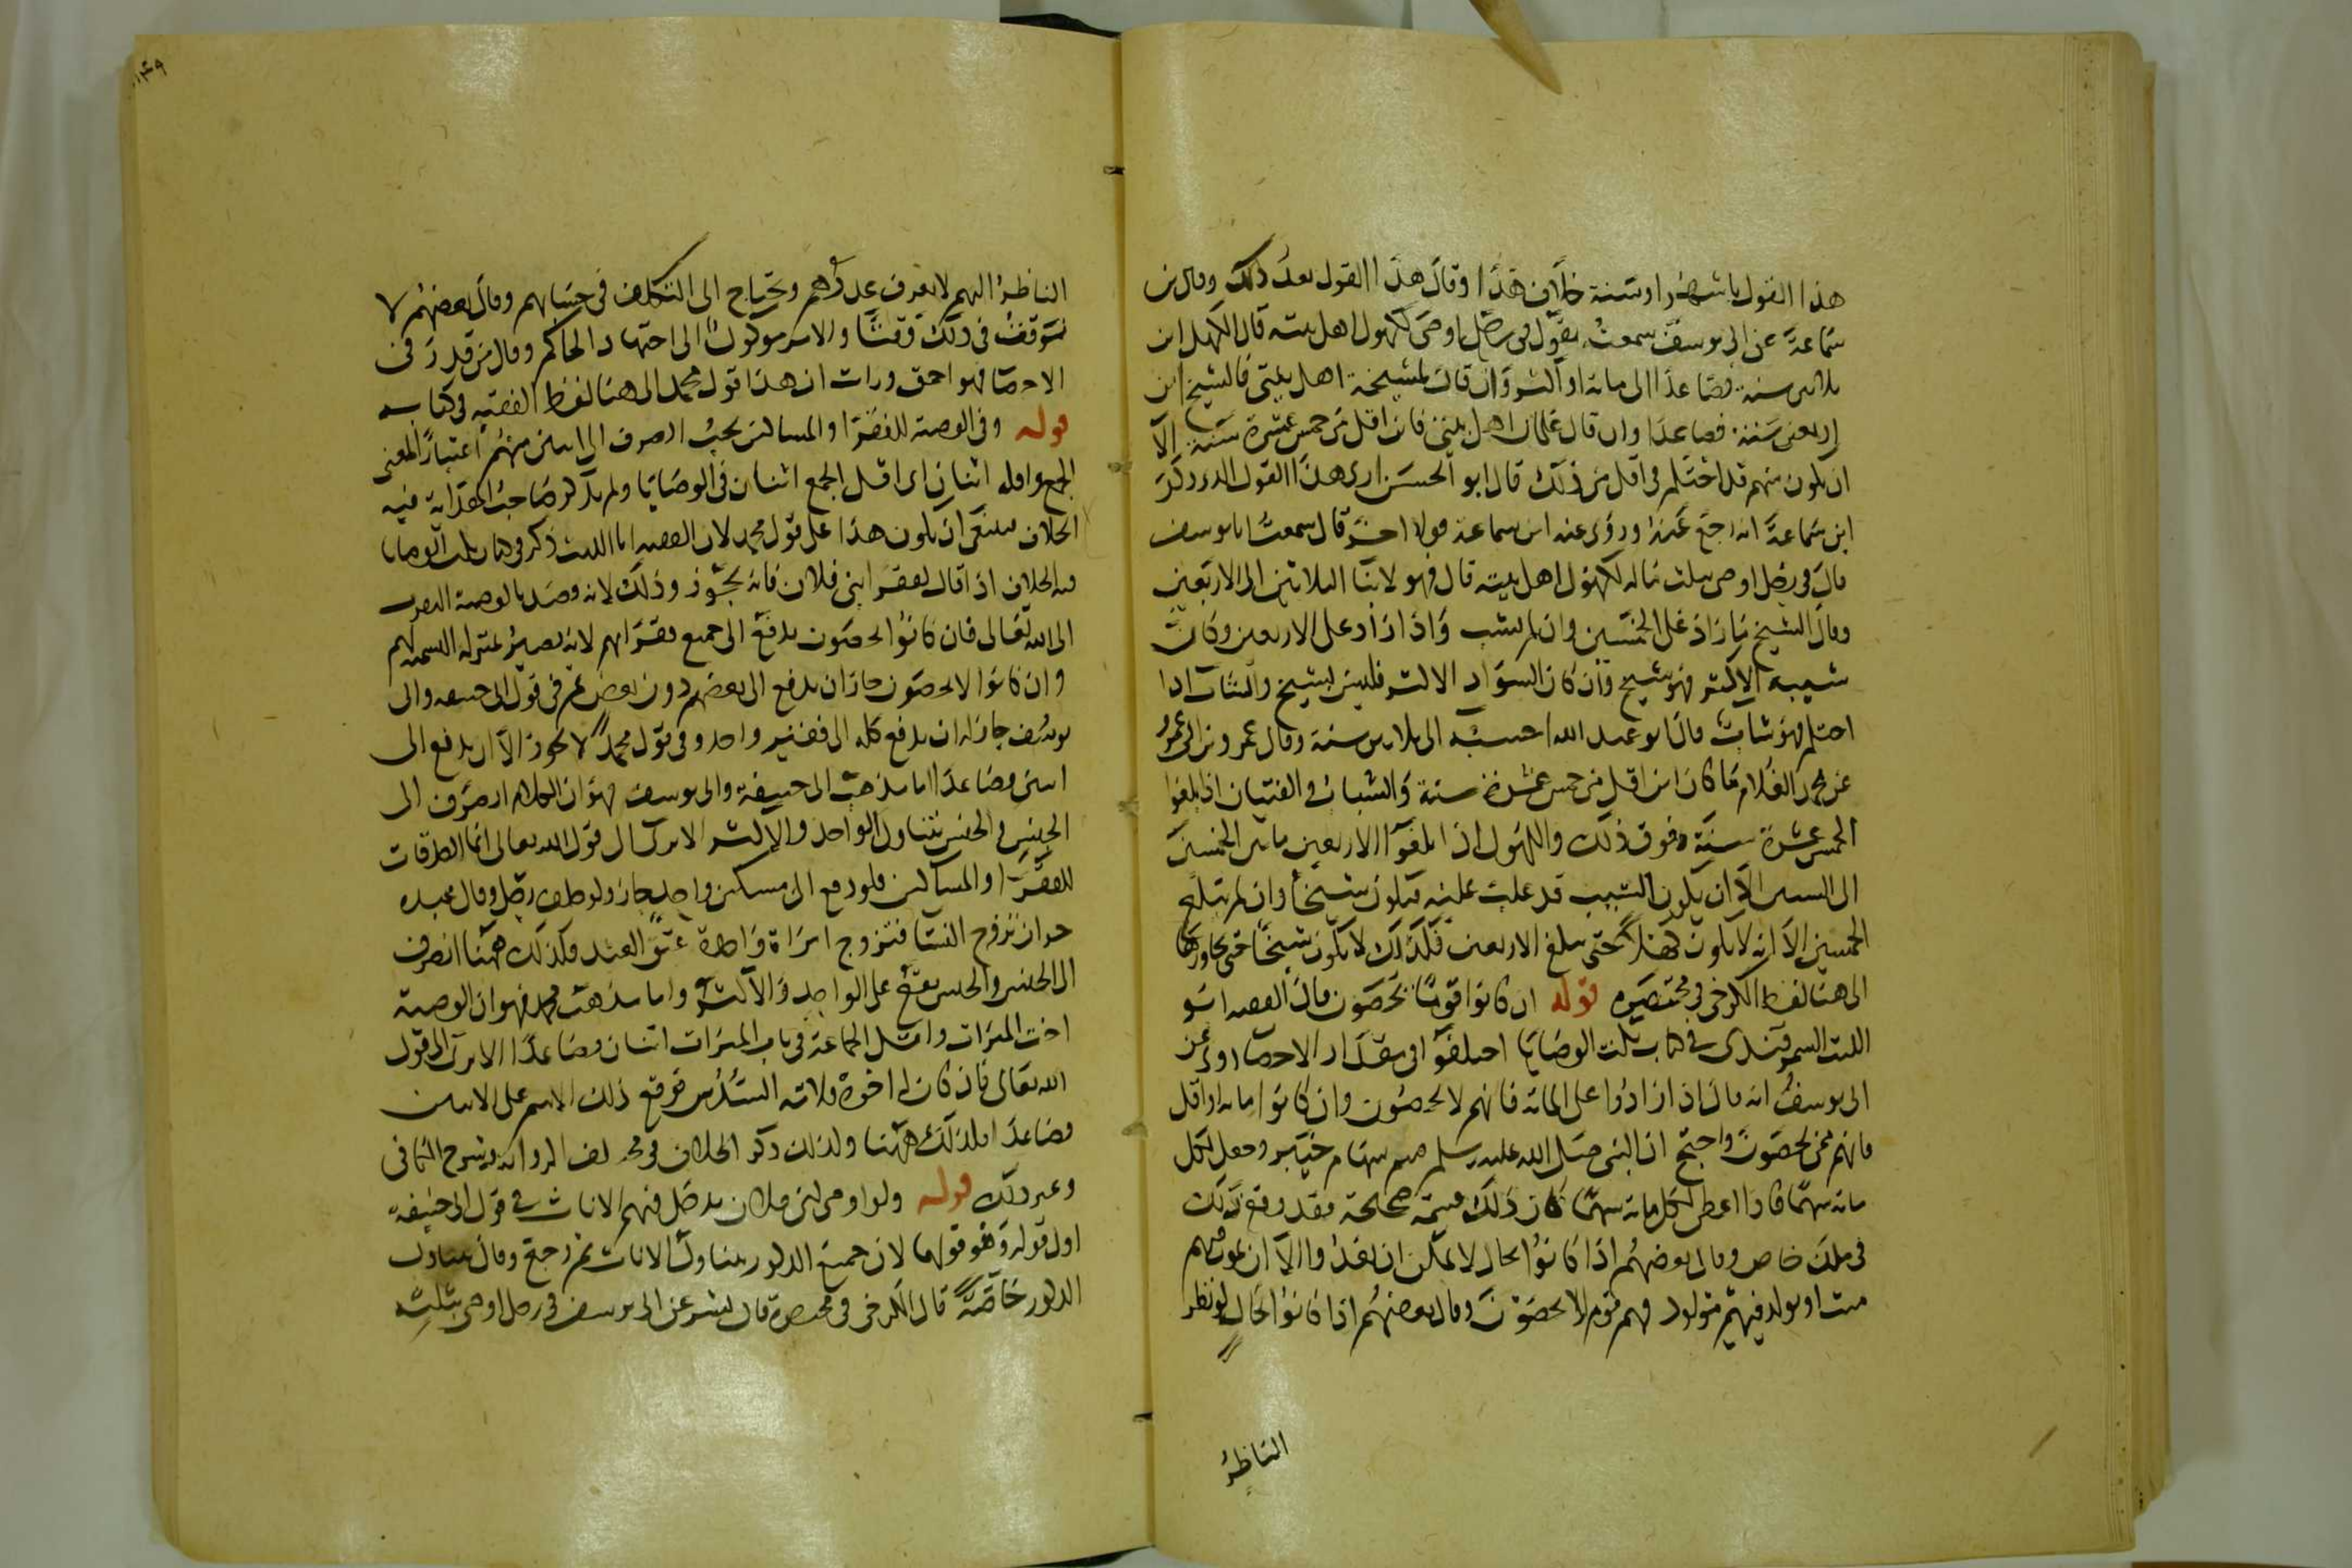 هذا القول باشهر او سنة خلاف هذا وقال هذا القول بعد ذلك وقال ابن
سماعة عن ابى يوسف سمعت يقول فى رجل اوصى لكهول اهل بيته قال الكهل ابن
ثلاثين سنة فصاعدا الى مائة او اكثر وان قال لمشيخة اهل بيتى فالشيخ ابن
اربعين سنة فصاعدا وان قال غلمان اهل بيتى فابن اقل من خمس عشرة سنة الا
ان يكون منهم قد احتلم فى اقل من ذلك قال ابو الحسن ارى هذا القول الذى ذكر
ابن سماعة انه رجع عنه وروى عنه ابن سماعة قولا اخر قال سمعت ابا يوسف
قال فى رجل اوصى بثلث ماله لكهول اهل بيته قال فهو لابنا الثلاثين الى الاربعين
وقال الشيخ ما زاد على الخمسين وان لم يشب واذا زاد على الاربعين وكانت
شيبه الاكثر فهو شيخ وان كان السواد الاكثر فليس بشيخ والشاب اذا
احتلم فهو شاب قال ابو عبد الله احسبه الى ثلاثين سنة وقال عمرو بن ابى عمرو
عن محمد الغلام ما كان ابن اقل من خمس عشرة سنة والشباب والفتيان اذا بلغوا
الخمس عشرة سنة وفوق ذلك والكهول اذا بلغوا الاربعين ما بين الخمسين
الى الستين الا ان يكون الشيب قد غلب عليه فيكون شيخا وان لم يبلغ
الخمسين الا انه لا يكون كهلا حتى يبلغ الاربعين فكذلك لا يكون شيخا حتى يجاوزها
الى هنا لفظ الكرخى فى مختصره قوله ان كانوا قوما يحصون قال الفقيه ابو
الليث السمرقندى فى كتاب نكت الوصايا اختلفوا فى مقدار الاحصا روى عن
ابى يوسف انه قال اذا زادوا على المائة فانهم لا يحصون وان كانوا مائة او اقل
فانهم ممن يحصون واحتج ان النبى صلى الله عليه وسلم قسم سهام خيبر وجعل لكل
مائة سهما فاذا اعطى لكل مائة سهما كان ذلك قسمة صحيحة فقد وقع ذلك
فى ملك خاص وقال بعضهم اذا كانوا بحال لا يمكن ان يعدوا الا ان يموت فيهم
ميت او يولد فيهم مولود فهم قوم لا يحصون وقال بعضهم اذا كانوا بحال لو نظر
الناظر
١٤٩
الناظر اليهم لا يعرف عددهم ويحتاج الى التكلف فى حسابهم وقال بعضهم لا
نتوقف فى ذلك وقتا والامر موكول الى اجتهاد الحاكم وقال من قدر فى
الاحصا فهو احمق ورات ان هذا قول محمد الى هنا لفظ الفقيه فى كتابه
قوله وفى الوصية للفقرا والمساكين يجب الصرف الى اثنين منهم اعتبارا لمعنى
الجمع واقله اثنان اى اقل الجمع اثنان فى الوصايا ولم يذكر صاحب الهداية فيه
الخلاف فينبغى ان يكون هذا على قول محمد لان الفقيه ابا الليث ذكر فى كتاب نكت الوصايا
فيه الخلاف اذا قال لفقرا بنى فلان فانه يجوز وذلك لانه قصد بالوصية التقرب
الى الله تعالى فان كانوا يحصون يدفع الى جميع فقرائهم لانه يصير بمنزلة التسمية لهم
وان كانوا لا يحصون جاز ان يدفع الى بعضهم دون بعضهم فى قول ابى حنيفة وابى
يوسف جاز له ان يدفع كله الى فقير واحد وفى قول محمد لا يجوز الا ان يدفع الى
اثنين فصاعدا اما مذهب ابى حنيفة وابى يوسف فهو ان الكلام انصرف الى
الجنس والجنس يتناول الواحد والاكثر الا ترى الى قول الله تعالى انما الصدقات
للفقرا والمساكين فلو دفع الى مسكين واحد جاز ولو حلف رجل وقال عبده
حر ان تزوج النسا فتزوج امراة واحدة عتق العبد فكذلك ههنا انصرف
الى الجنس والجنس يقع على الواحد والاكثر واما مذهب محمد فهو ان الوصية
اخت الميراث واقل الجماعة فى باب الميراث اثنان فصاعدا الا ترى الى قول
الله تعالى فان كان له اخوة فلامه السدس فوقع ذلك الاسم على الاثنين
فصاعدا فكذلك ههنا ولذلك ذكر الخلاف فى مختلف الرواية وشرح الكافى
وغير ذلك قوله ولو اوصى لبنى فلان يدخل فيهم الاناث فى قول ابى حنيفة
اول قوله وهو قولهما لان جميع الذكور يتناول الاناث ثم رجع وقال يتناول
الذكور خاصة قال الكرخى فى مختصره قال بشر عن ابى يوسف فى رجل اوصى بثلثه